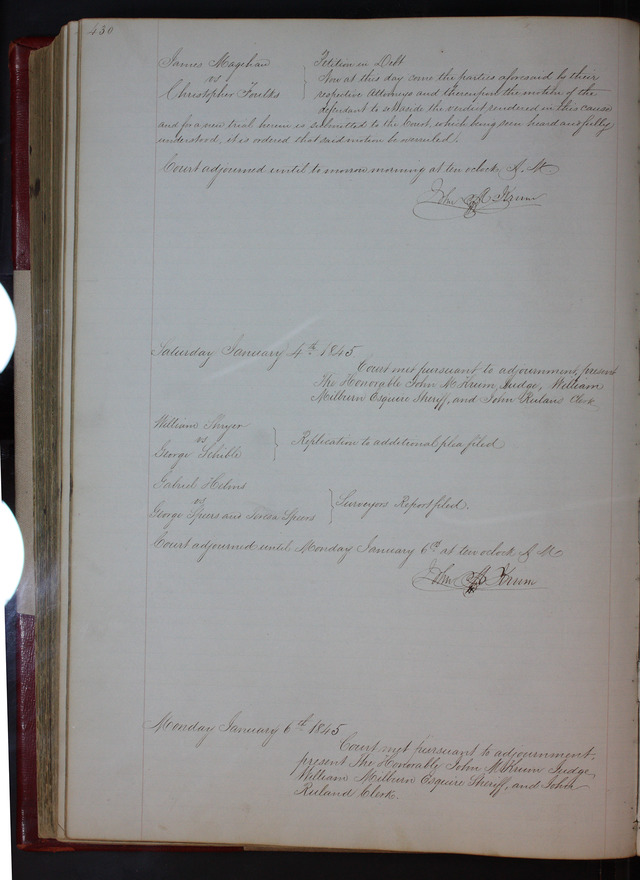 430
James Magehan Petition in Debt
vs Now at this day come the parties aforesaid by their
Christopher Foulks respective Attorneys and thereupon the motion of the
defendant to set aside the verdict rendered in this cause
and for a new trial herein is submitted to the Court, which being seen heard and fully
understood, it is ordered that said motion be overruled.
Court adjourned until to morrow morning at ten oclock A. M
John M Krum
Saturday January 4th 1845
Court met pursuant to adjournment, present
The Honorable John M. Krum, Judge, William
Milburn Esquire Sheriff, and John Ruland Clerk
William Thryer
vs Replication to additional plea filed
George Schible
Gabriel Helms
vs Surveyors Report filed.
George Speers and Teresa Speers
Court adjourned until Monday January 6th at ten oclock A. M
John M Krum
Monday January 6th 1845
Court met pursuant to adjournment,
present The Honorable John M Krum Judge,
William Milburn Esquire Sheriff, and John
Ruland Clerk.